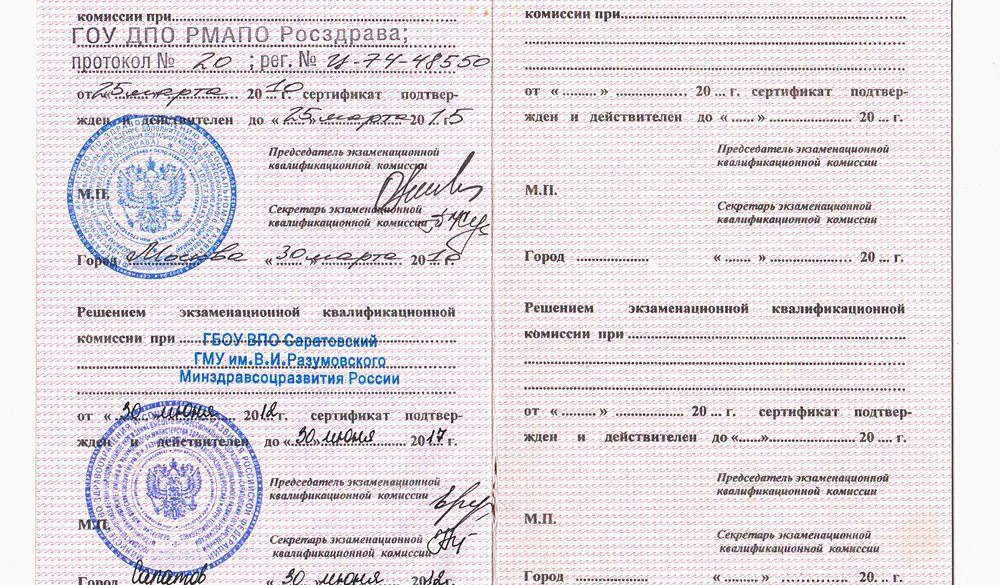 комиссии при
ГОУ ДПО РМАПО Росздрава;
протокол № 20 ; рег. № И-74-48550
от «25» марта 2010 г. сертификат подтвер-
жден и действителен до «25» марта 2015
Председатель экзаменационной
квалификационной комиссии
М.П.
Секретарь экзаменационной
квалификационной комиссии
Город Москва «30» марта 2010
Решением экзаменационной квалификационной
комиссии при ГБОУ ВПО Саратовский
ГМУ им.В.И.Разумовского
Минздравсоцразвития России
от «30» июня 2012 г. сертификат подтвер-
жден и действителен до «30» июня 2017 г.
Председатель экзаменационной
квалификационной комиссии
М.П.
Секретарь экзаменационной
квалификационной комиссии
Город Саратов «30» июня 2012 г.
комиссии при
от «.......» .................. 20 ... г. сертификат подтвер-
жден и действителен до «......» .................... 20 ... г.
Председатель экзаменационной
квалификационной комиссии
М.П.
Секретарь экзаменационной
квалификационной комиссии
Город .................. «.......» .................. 20 ... г.
Решением экзаменационной квалификационной
комиссии при
от «.........» .................. 20 ... г. сертификат подтвер-
жден и действителен до «......»..................... 20 .... г.
Председатель экзаменационной
квалификационной комиссии
М.П.
Секретарь экзаменационной
квалификационной комиссии
Город .................. «.......» .................. 20 ... г.